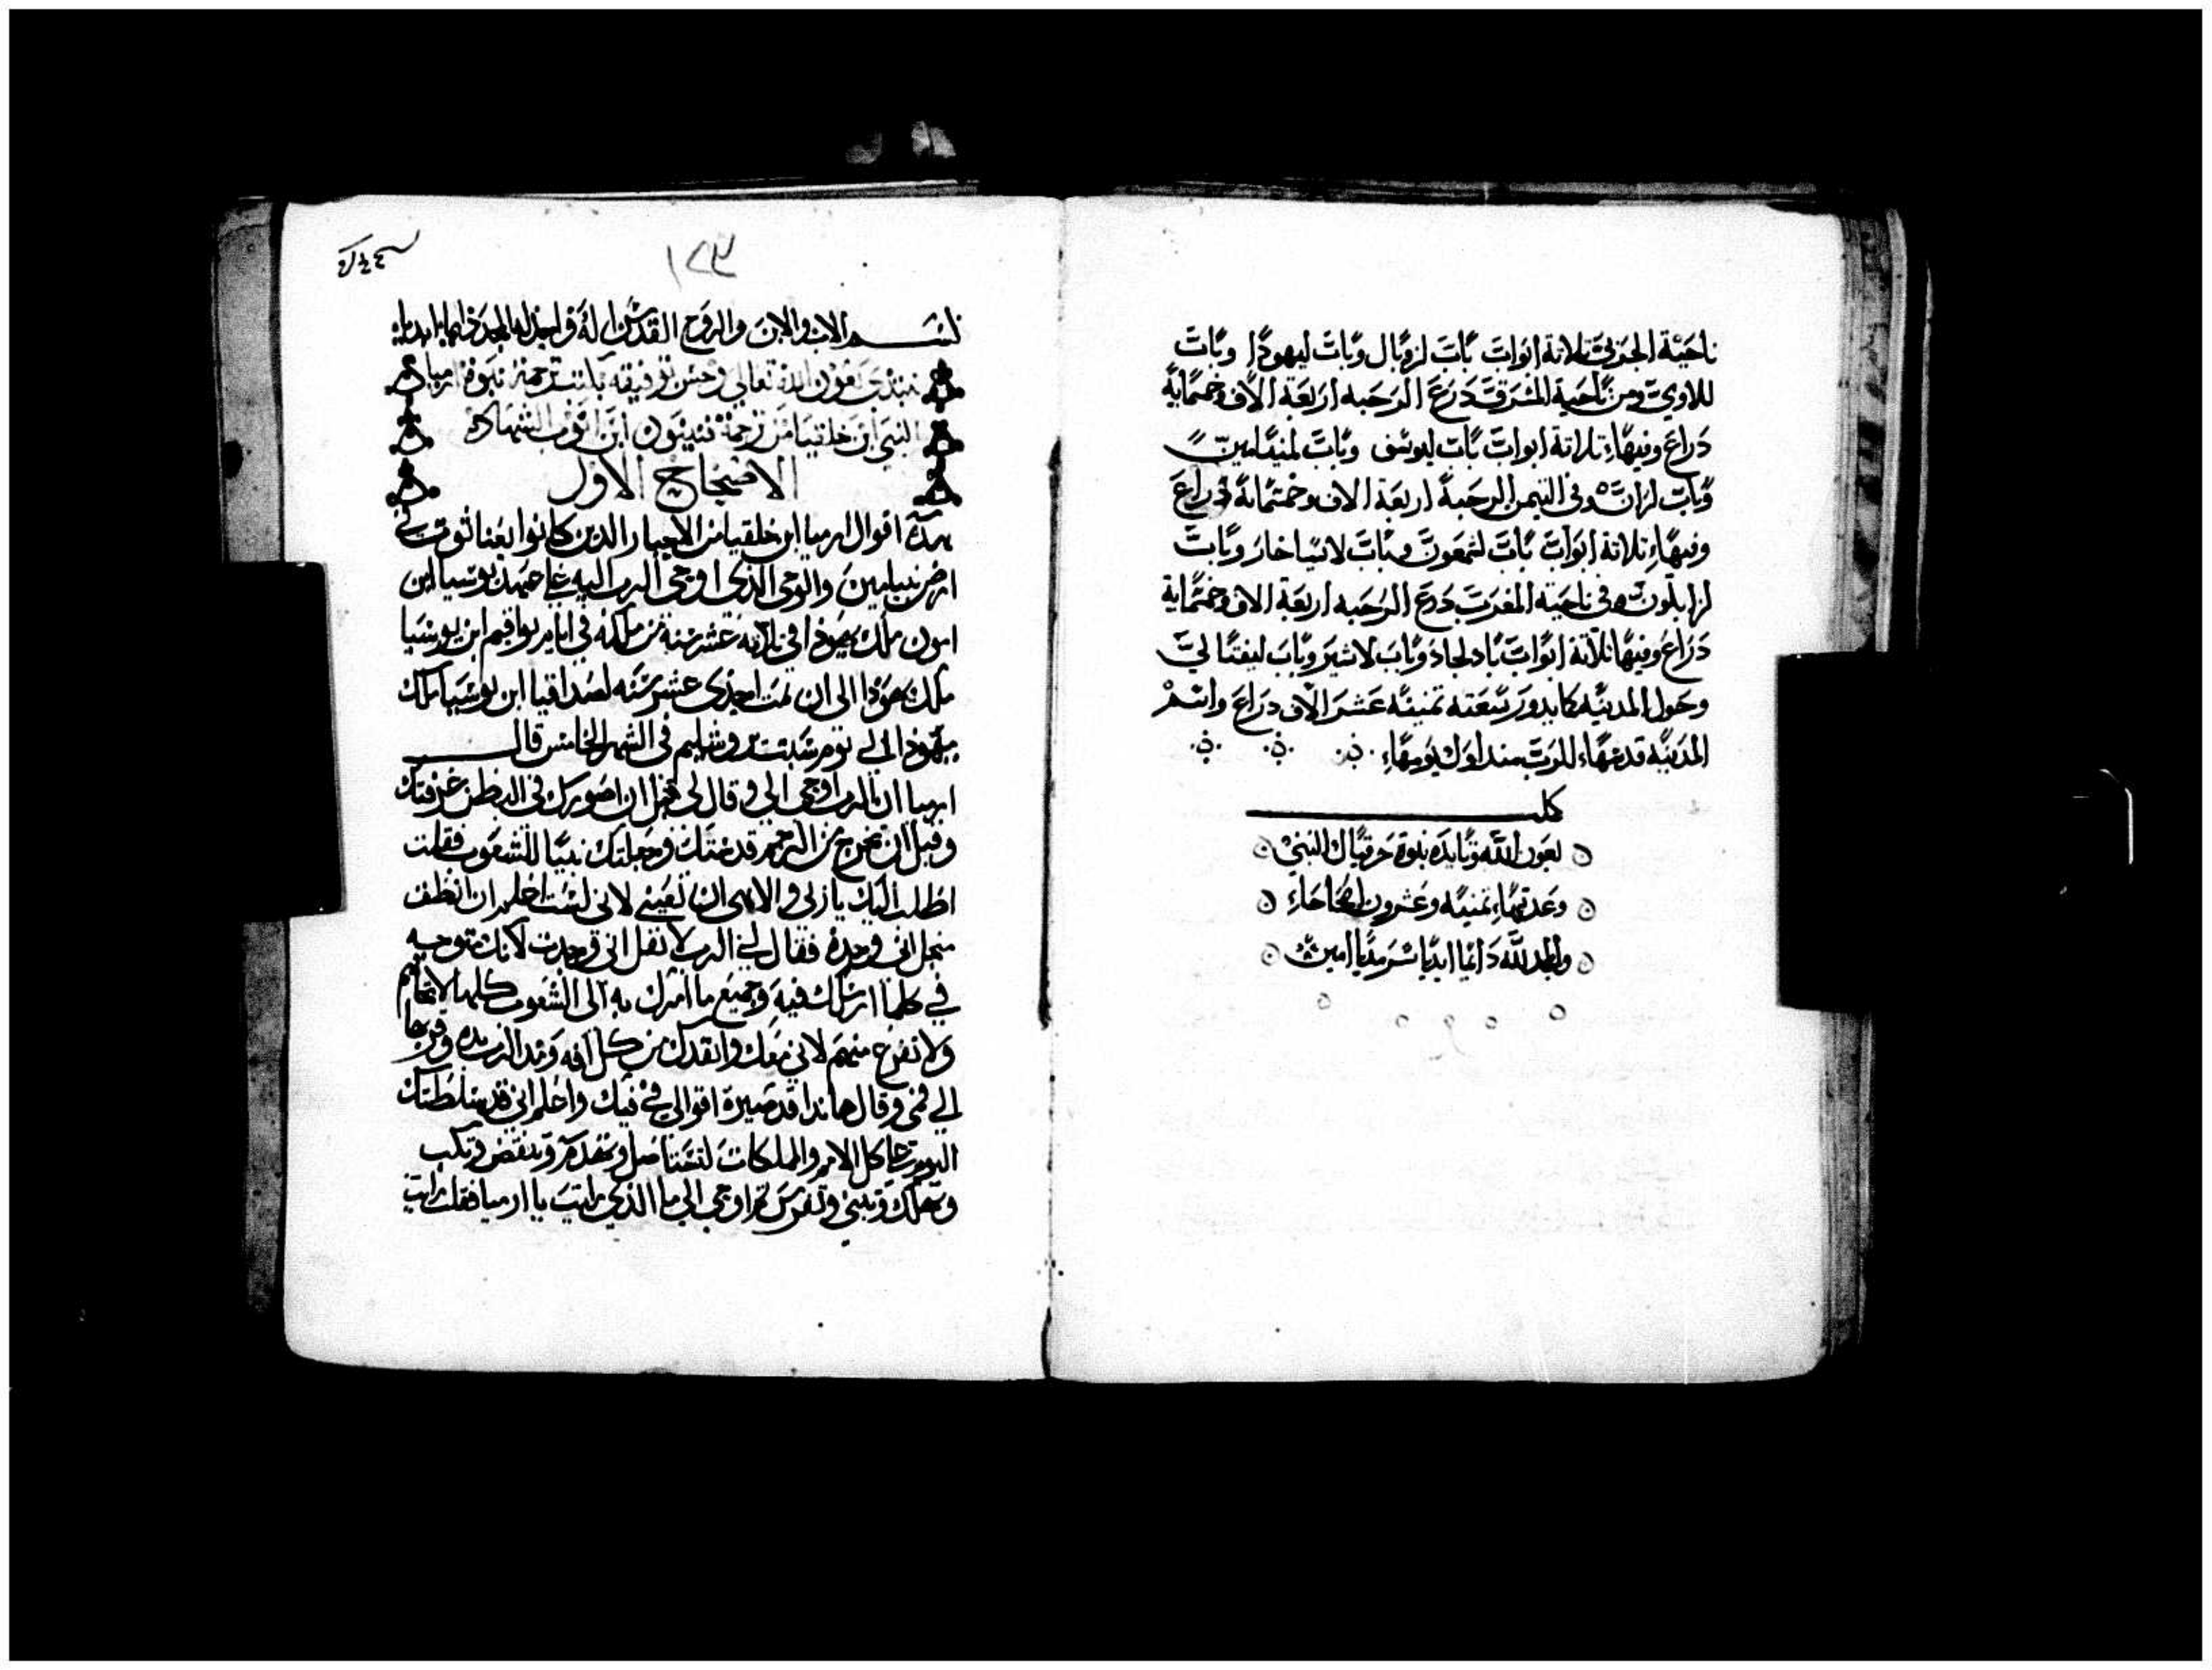 ناحية الجربي تلاتة ابواب باب لزوبال وباب ليهودا وباب
للاوي ومن ناحية المشرق درع الرحبه اربعة الاف وخمماية
دراع وفيهاء تلاتة ابواب باب ليوسف وباب لمنيامين
وباب لدان وفي التيمن الرحبة اربعة الاف وخمتماية دراع
وفيهاء تلاتة ابواب باب لشمعون وباب لاسياخار وباب
لزابلون وفي ناحية المغرب درع الرحبه اربعة الاف وخمتماية
دراع وفيها تلاتة ابواب باب لجاد وباب لاشير وباب ليفتالي
وحول المدينه كابدور سبعته تمنيه عشر الاف دراع واسم
المدينه قدمهاء للرب منداول يومهاء
كلـ
بعون الله وتايده نبوة حزقيال النبي
وعدتهاء تمنيه وعشرون اصحاحاء
والمجد لله دايما ابديا سرمديا امين
١٢٣
بسم الاب والابن والروح القدس اله واحد له المجد دايما ابديا
نبتدي بعون الله تعالى وحسن توفيقه بكتب ترجمة نبوة ارميا
النبي ابن خلقيا من ترجمة ابن الشهادة
الاصحاح الاول
هده اقوال ارميا ابن خلقيا من الاحبار الدين كانوا بعناثوث في
ارض بنيامين والوحي الذي اوحي الرب اليه على عهد يوسيا ابن
امون ملك يهودا في تلاته عشر سنة من ملكه في ايام يواقيم ابن يوسيا
ملك يهودا الى ان تمت احدى عشر سنه لصداقيا ابن يوسيا ملك
يهودا الى يوم سبيت يروشليم في الشهر الخامس قال
ارميا ان الرب اوحي الي وقال لي قبل ان اصورك في البطن عرفتك
وقبل ان تخرج من الرحم قدستك وجعلتك نبيا للشعوب فقلت
اطلب اليك يا ربي والاهي ان تعيني لاني لست اعلم ان انطق
منجل اني وحده فقال لي الرب لا تقل اني وحدت لانك متوجه
في كلما ارسلك فيه وجميع ما امرك به الى الشعوب كلها
ولا تفزع منهم لاني معك وانقدك من كل افه ومد الرب يده وقربها
الى فمي وقال هاندا قد صيرة اقوالي في فيك واعلم اني قد سلطتك
اليوم على كل الامم والمملكات لتستاصل وتهدم وتنقض وتكب
وتهلك وتبني وتغرس تم اوحي الي ما الذي رايت يا ارميا فقلت رايت